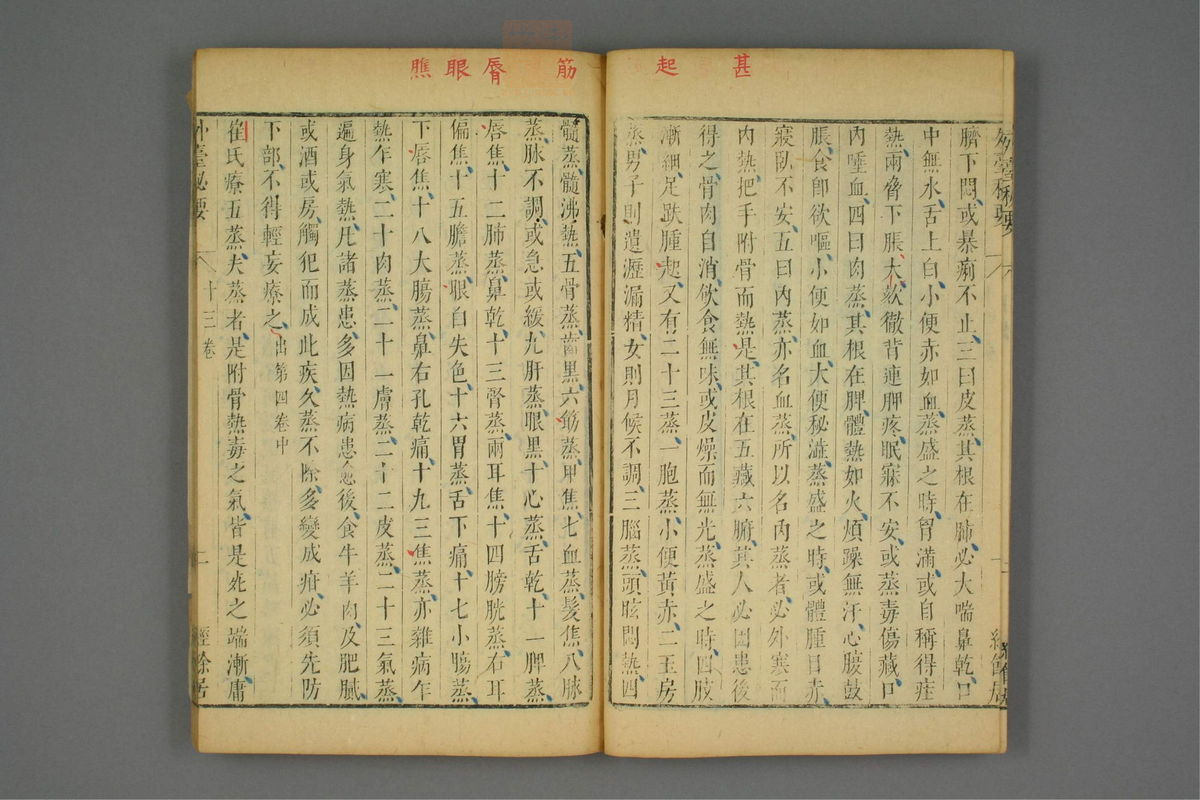 甚
起
臍下悶或暴痢不止三曰皮蒸其根在肺必大喘鼻乾口
中無水舌上白小便赤如血蒸盛之時胷滿或自稱得疰
熱兩脅下脹大欬徹背連胛疼眠寐不安或蒸毒傷藏口
內唾血四曰肉蒸其根在脾體熱如火煩躁無汗心腹鼓
脹食卽欲嘔小便如血大便秘澁蒸盛之時或體腫目赤
寢臥不安五曰內蒸亦名血蒸所以名內蒸者必外寒而
內熱把手附骨而熱是其根在五藏六腑其人必因患後
得之骨肉自消飲食無味或皮燥而無光蒸盛之時四肢
漸細足趺腫起又有二十三蒸一胞蒸小便黃赤二玉房
蒸男子則遺瀝漏精女則月候不調三腦蒸頭眩悶熱四
筋
脣
眼
膲
髓蒸髓沸熱五骨蒸齒黑六筋蒸甲焦七血蒸髮焦八脉
蒸脉不調或急或緩九肝蒸眼黑十心蒸舌乾十一脾蒸
唇焦十二肺蒸鼻乾十三腎蒸兩耳焦十四膀胱蒸右耳
偏焦十五膽蒸眼白失色十六胃蒸舌下痛十七小腸蒸
下唇焦十八大腸蒸鼻右孔乾痛十九三焦蒸亦雜病乍
熱乍寒二十肉蒸二十一膚蒸二十二皮蒸二十三氣蒸
遍身氣熱凡諸蒸患多因熱病患愈後食牛羊肉及肥膩
或酒或房觸犯而成此疾久蒸不除多變成疳必須先防
下部不得輕妄療之出第四卷中
崔氏療五蒸夫蒸者是附骨熱毒之氣皆是死之端漸庸
外臺秘要
十三卷
二
經餘居